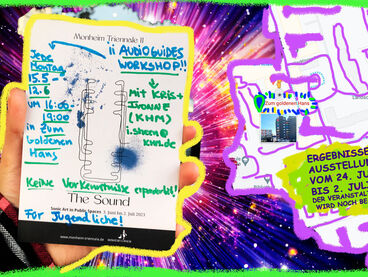 Monheim Triennale II
¡¡ AUDIOGUIDES
WORKSHOP!!
Jede
Montag
15.5 →
12.6
UM 16:00-
19:00
in Zum
Goldenen
Hans
Mit Kris +
IVONNE
(KHM)
Keine Vorkenntnisse erforderl!
The Sound
Sonic Art in Public Spaces 3. Juni bis 2. Juli 2023
Für Jugendliche!
www.monheim-triennale.de
Zum goldenen Hans
ERGEBNISSE
AUSSTELLUN
VOM 24. JU
BIS 2. JUL
DER VERANSTAL
WIRD NOCH BE